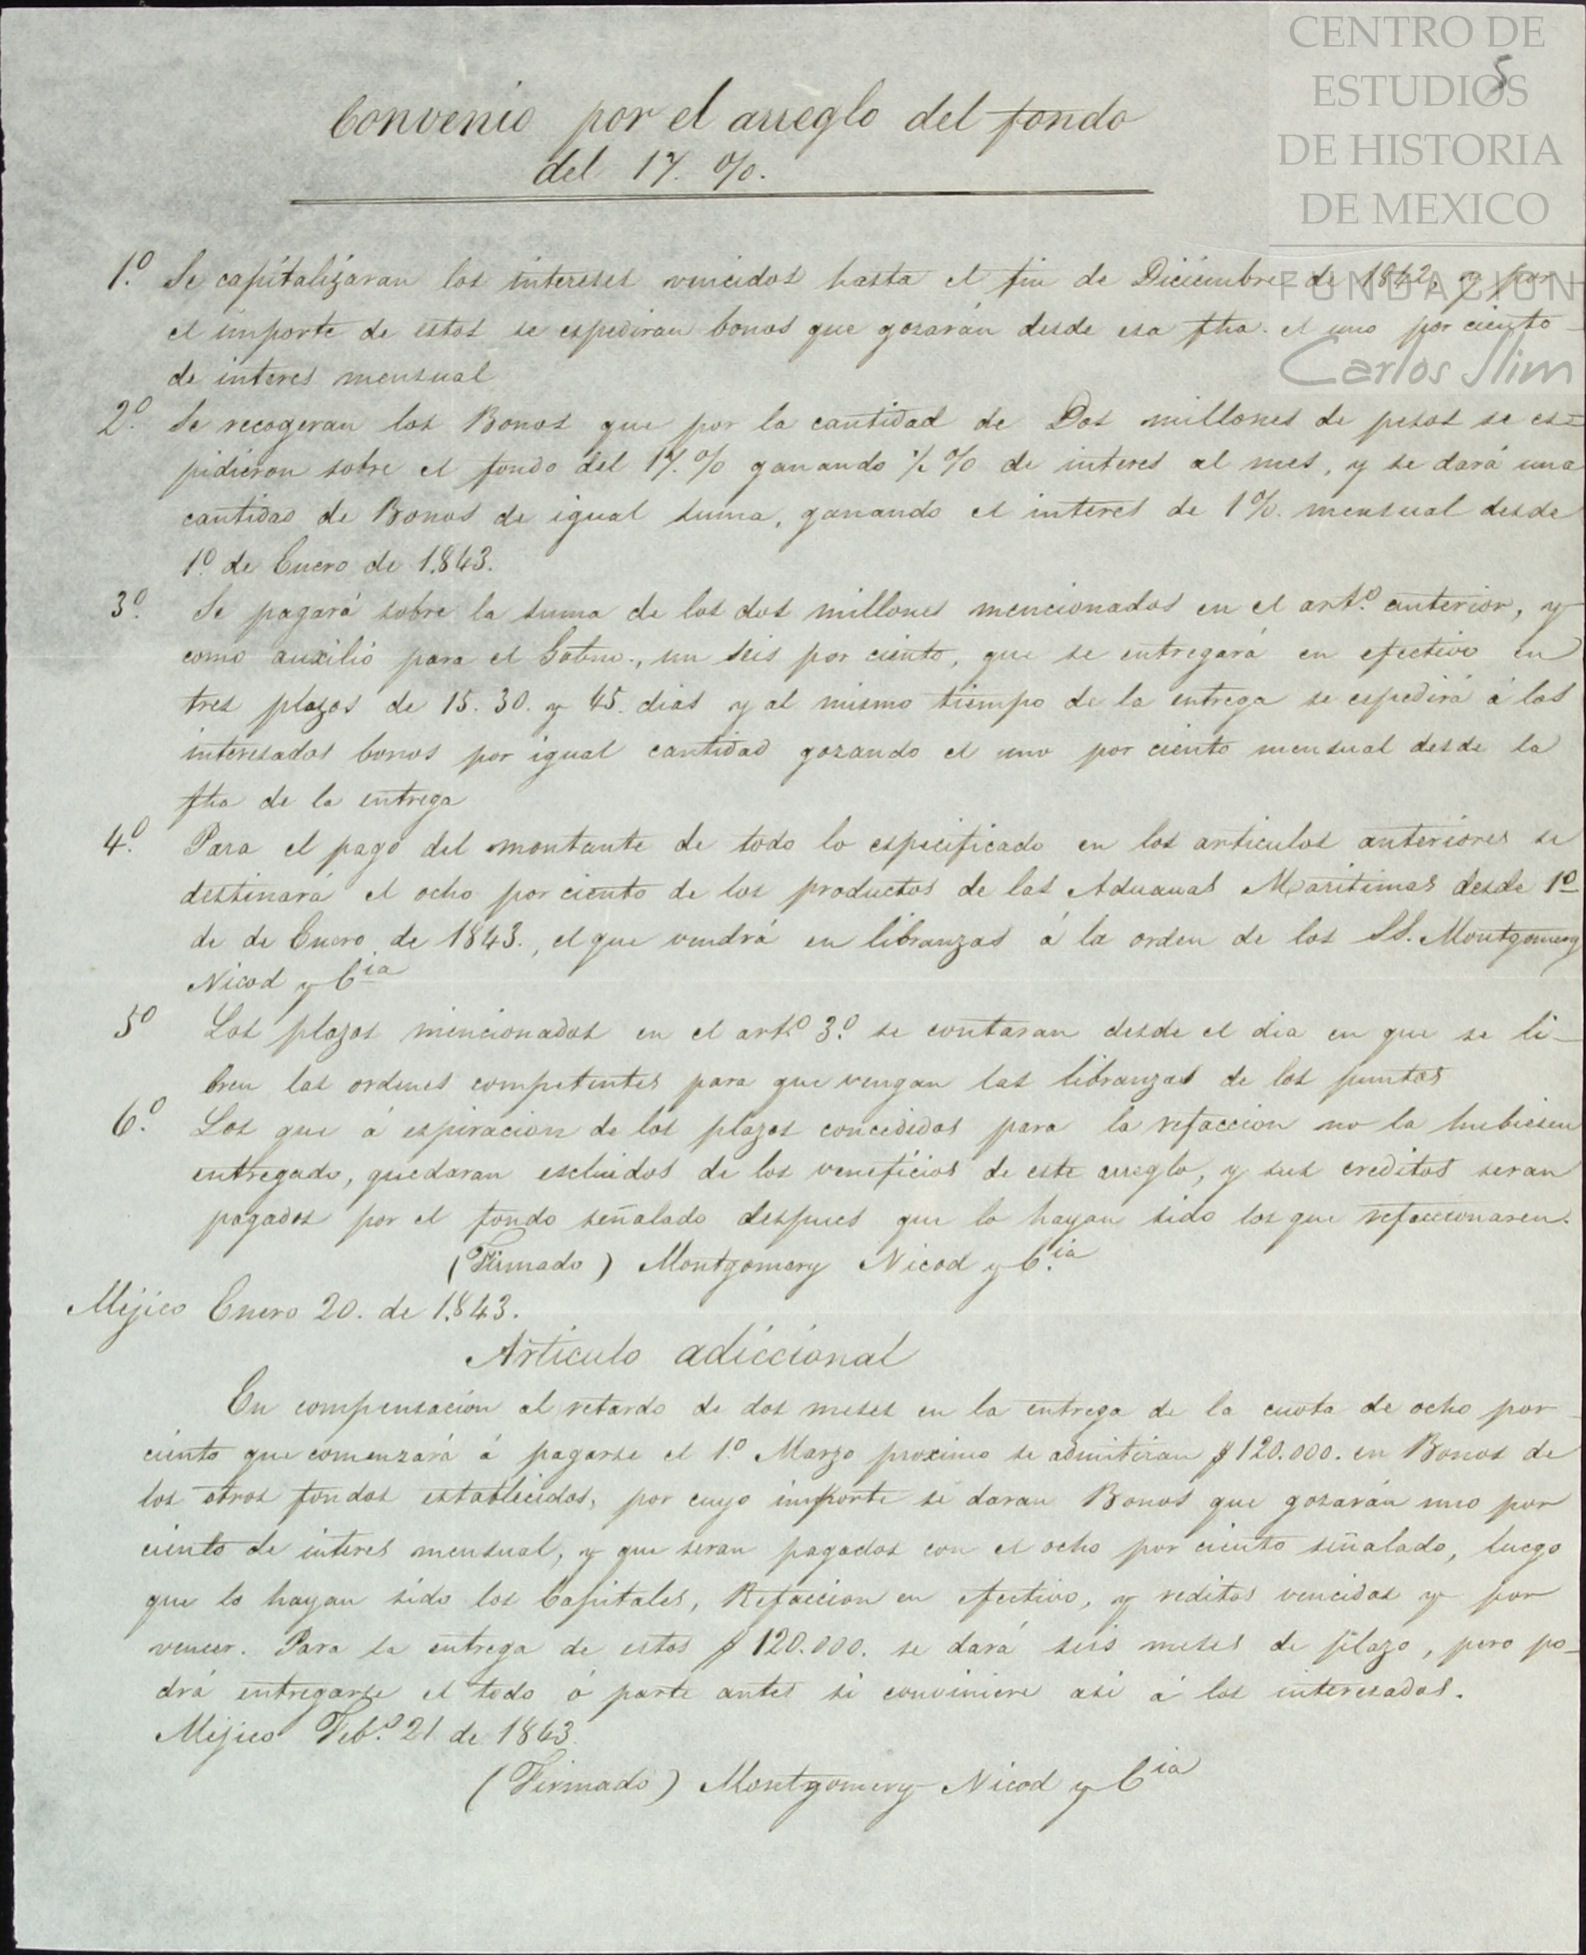 CENTRO DE
ESTUDIOS
DE HISTORIA
DE MEXICO
FUNDACION
Carlos Slim
5
Convenio por el arreglo del fondo
del 17. %.
1.º Se capitalizaran los intereses vencidos hasta el fin de Diciembre de 1842, y por
el importe de estos se espediran bonos que gozarán desde esa fha. el uno por ciento
de interes mensual
2.º Se recogeran los Bonos que por la cantidad de Dos millones de pesos se es=
pidieron sobre el fondo del 17.% ganando ½ % de interes al mes, y se dará una
cantidad de Bonos de igual suma, ganando el interes de 1%. mensual desde
1.º de Enero de 1.843.
3.º Se pagará sobre la suma de los dos millones mencionados en el art.º anterior, y
como auxilio para el Gobno., un seis por ciento, que se entregará en efectivo en
tres plazos de 15. 30. y 45. dias y al mismo tiempo de la entrega se espedirá á los
interesados bonos por igual cantidad gozando el uno por ciento mensual desde la
fha de la entrega
4.º Para el pago del montante de todo lo especificado en los articulos anteriores se
destinará el ocho por ciento de los productos de las Aduanas Maritimas desde 1º
de de Enero de 1843., el que vendrá en libranzas á la orden de los SS. Montgomery
Nicod y Cia
5º Los plazos mencionados en el art.º 3.º se contaran desde el dia en que se li-
bren las ordenes competentes para que vengan las libranzas de los puntos
6.º Los que á espiracion de los plazos concedidos para la refaccion no la hubiesen
entregado, quedaran escluidos de los veneficios de este arreglo, y sus creditos seran
pagados por el fondo señalado despues que lo hayan sido los que refaccionaren.
(Firmado) Montgomery Nicod y C.ia
Mejico Enero 20. de 1.843.
Articulo adiccional
En compensacion al retardo de dos meses en la entrega de la cuota de ocho por
ciento que comenzará á pagarse el 1.º Marzo proximo se admitiran $120.000. en Bonos de
los otros fondos establecidos, por cuyo importe se daran Bonos que gozarán uno por
ciento de interes mensual, y que seran pagados con el ocho por ciento señalado, luego
que lo hayan sido los Capitales, Refaccion en efectivo, y reditos vencidos y por
vencer. Para la entrega de estos $ 120.000. se dará seis meses de plazo, pero po-
drá entregarse el todo ó parte antes si conviniere asi á los interesados.
Mejico Feb.º 21 de 1843.
(Firmado) Montgomery Nicod y Cia